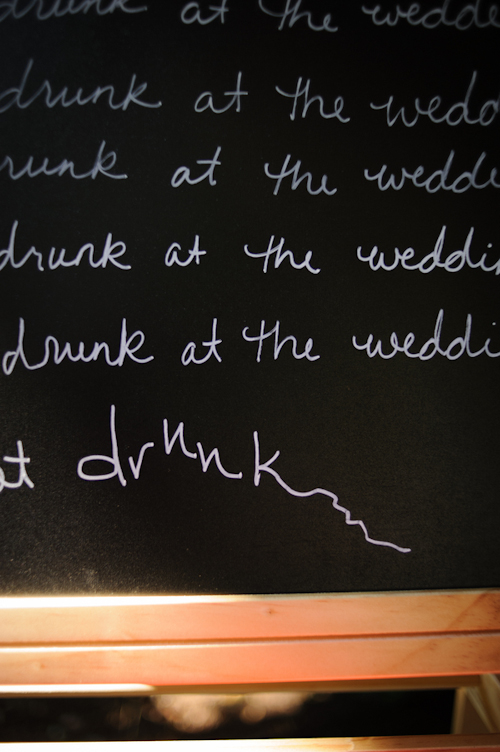 drunk at the wedde
drunk at the wedd
runk at the wedde
drunk at the weddin
drunk at the weddi
at drunk